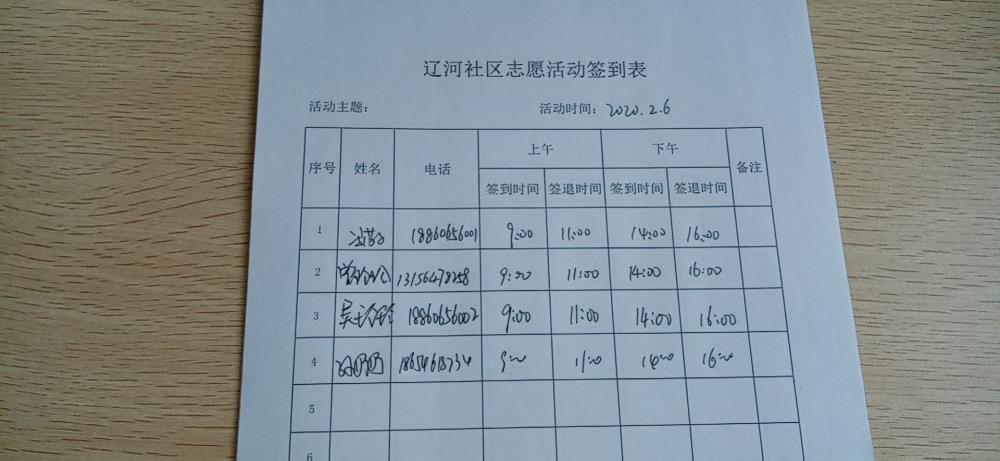 辽河社区志愿活动签到表
活动主题: 活动时间: 2020.2.6
序号 姓名 电话 上午 下午 备注
签到时间 签退时间 签到时间 签退时间
1 18860656001 9:00 11:00 14:00 16:00
2 13156478258 9:00 11:00 14:00 16:00
3 18860656002 9:00 11:00 14:00 16:00
4 9:00 11:00 14:00 16:00
5
6